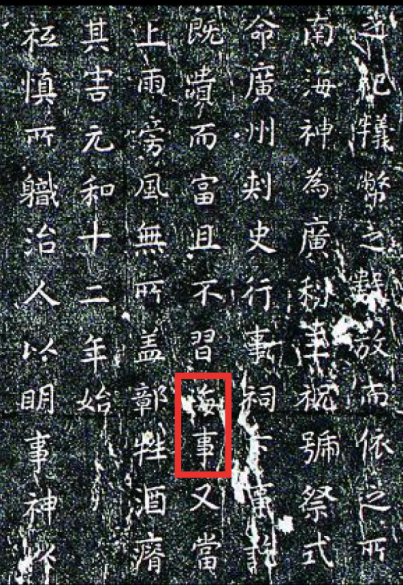 之祀犧幣之數放而依之所
南海神為廣利王祝號祭式
命廣州刺史行事祠下事訖
既貴而富且不習海事又當
上雨旁風無所盖鄣牲酒瘠
其害元和十二年始
祗慎所職治人以明事神以